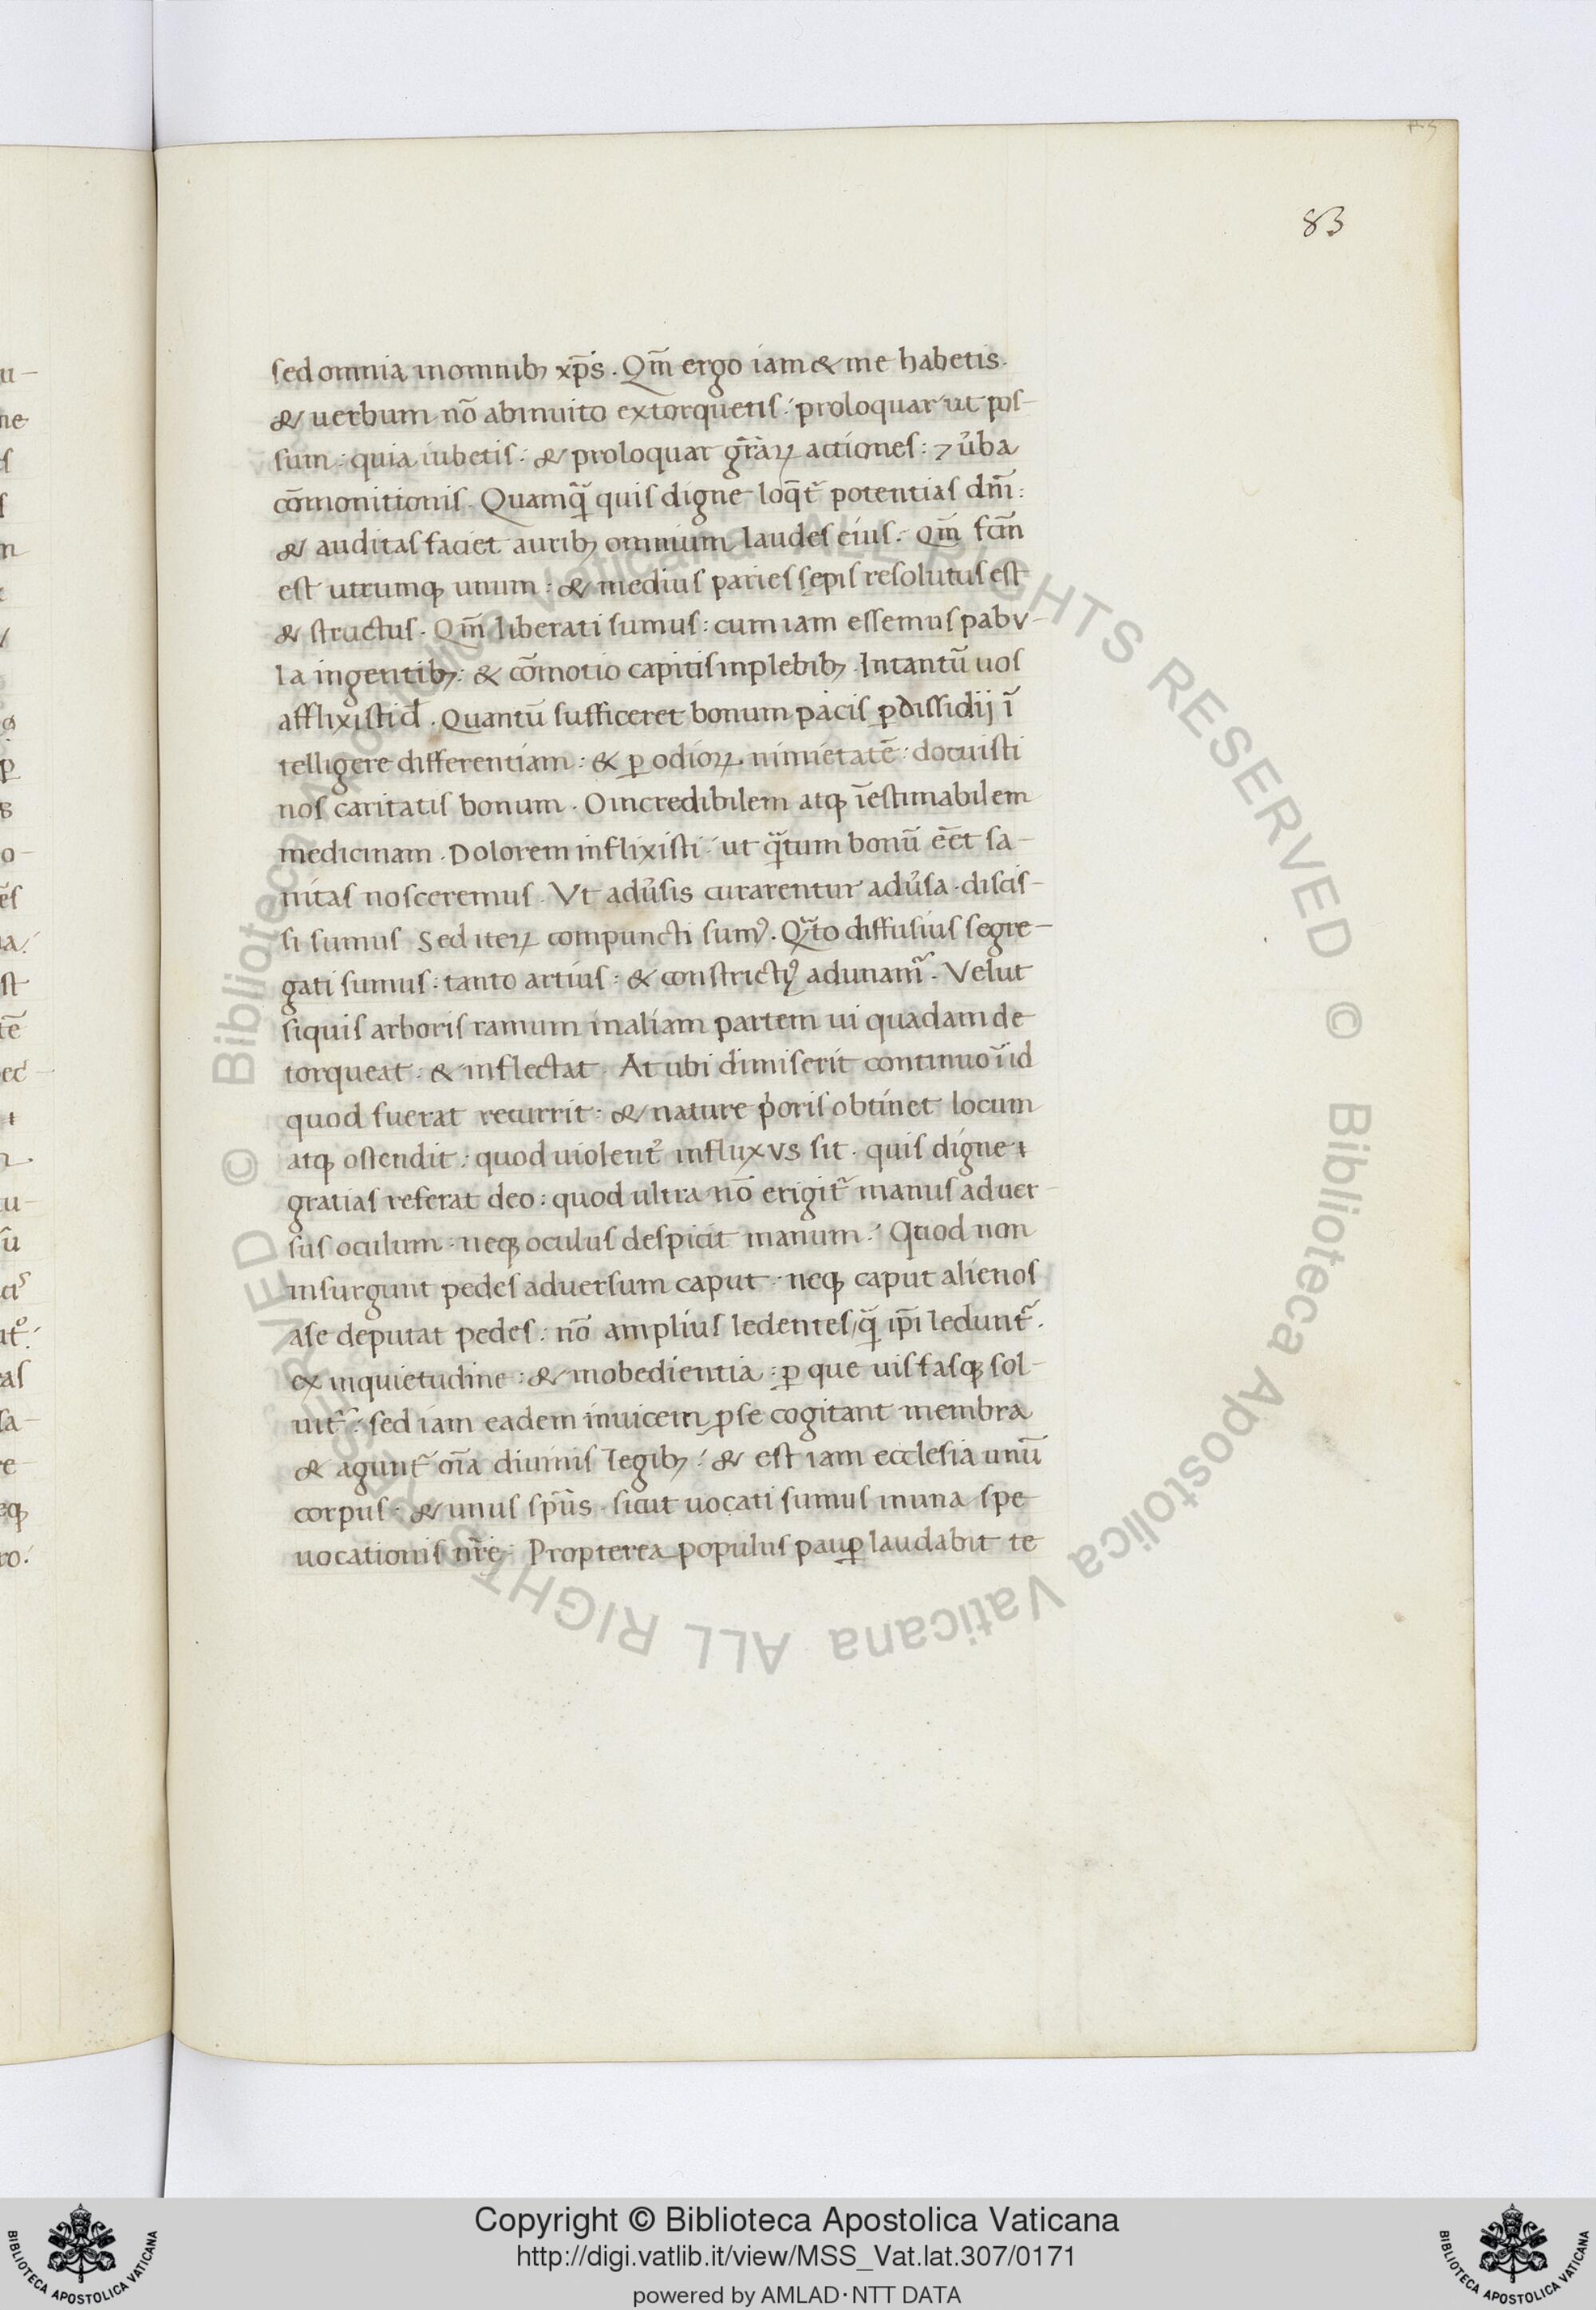 83
sed omnia inomnibꝫ xp̄s. Qm̄ ergo iam & me habetis.
& uerbum nō abinuito extorquetis: proloquar ut pos-
sum: quia iubetis: & proloquar gr̄aꝝ actiones: ⁊ u̓ba
cōmonitionis. Quamq̃ quis digne loq̄t᷑ potentias dn̄i:
& auditas faciet auribꝫ omnium laudes eius. Qm̄ fc̄m
est utrumqꝫ unum: & medius paries sepis resolutus est
& structus. Qm̄ liberati sumus: cum iam essemus pabv-
la ingentibꝫ: & cōmotio capitis inplebibꝫ. Intantū uos
afflixisti d̄. Quantū sufficeret bonum pacis ꝑ dissidij ī
telligere differentiam: & ꝑ odioꝝ nimietatē: docuisti
nos caritatis bonum. O incredibilem atqꝫ īestimabilem
medicinam. Dolorem inflixisti: ut q̃tum bonū eēt sa-
nitas nosceremus. Vt adu̓sis curarentur adu̓sa. discis-
si sumus Sed iteꝝ compuncti sumꝰ. Q̃to diffusius segre-
gati sumus: tanto artius: & constrictiꝰ adunam᷑. Velut
siquis arboris ramum inaliam partem ui quadam de
torqueat: & inflectat. At ubi dimiserit continuo ī id
quod fuerat recurrit: & nature p̓oris obtinet locum
atqꝫ ostendit: quod uiolent᷑ influxvs sit. quis digne
gratias referat deo: quod ultra nō erigit᷑ manus aduer-
sus oculum. neqꝫ oculus despicit manum: Quod non
insurgunt pedes aduersum caput. neqꝫ caput alienos
ase deputat pedes: nō amplius ledentes, q̃ ip̄i ledunt᷑.
ex inquietudine: & inobedientia: ꝑ que uis fasqꝫ sol-
uit᷑: sed iam eadem inuicem ꝓ se cogitant membra
& agunt᷑ om̄a diuinis legibꝫ: & est iam ecclesia unū
corpus. & unus sp̄us. sicut uocati sumus inuna spe
uocationis nr̄e. Propterea populus pauꝑ laudabit te
© Biblioteca Apostolica Vaticana ALL RIGHTS RESERVED © Biblioteca Apostolica Vaticana ALL RIGHTS RESERVED
Copyright © Biblioteca Apostolica Vaticana
http://digi.vatlib.it/view/MSS_Vat.lat.307/0171
powered by AMLAD·NTT DATA
BIBLIOTECA APOSTOLICA VATICANA
BIBLIOTECA APOSTOLICA VATICANA